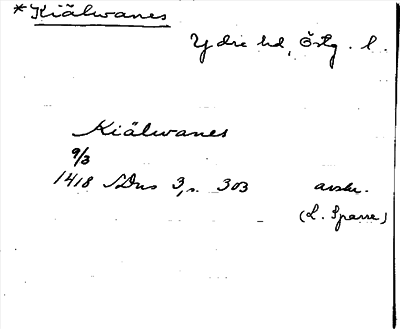 *Kiälwanes
Ydre hd, Östg. l.
Kiälwanes
9/3
1418 SDns 3, s. 303 avskr.
(L. Sparre)